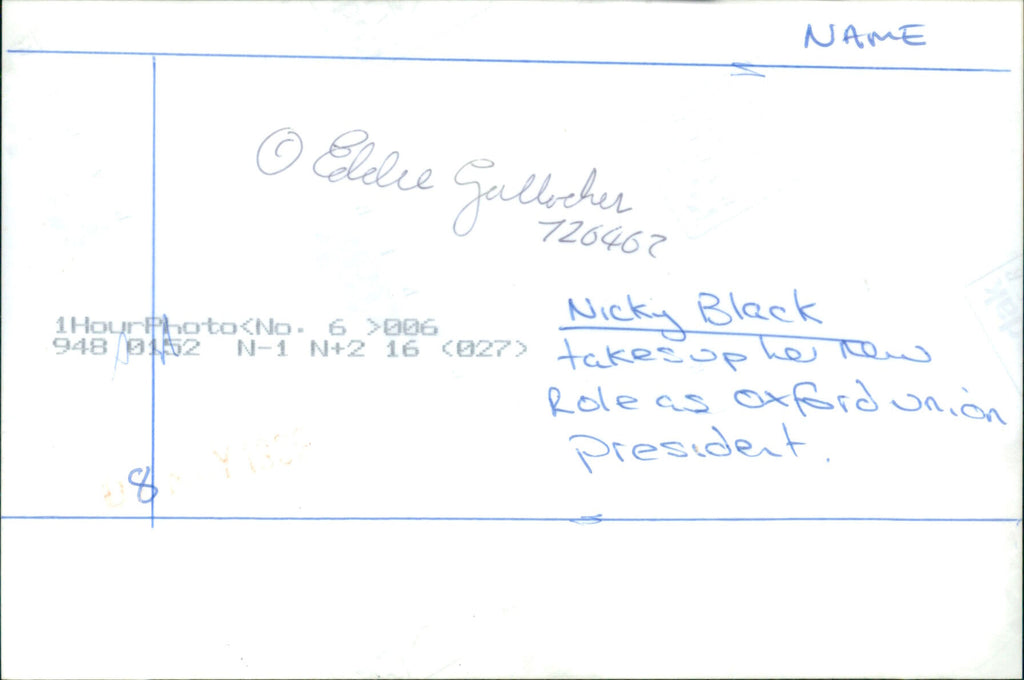 NAME
© Eddie Gallocher
726462
1HourPhoto<No. 6 >006
948 0152 N-1 N+2 16 <027>
Nicky Black
takes up her new
Role as oxford union
president.
8